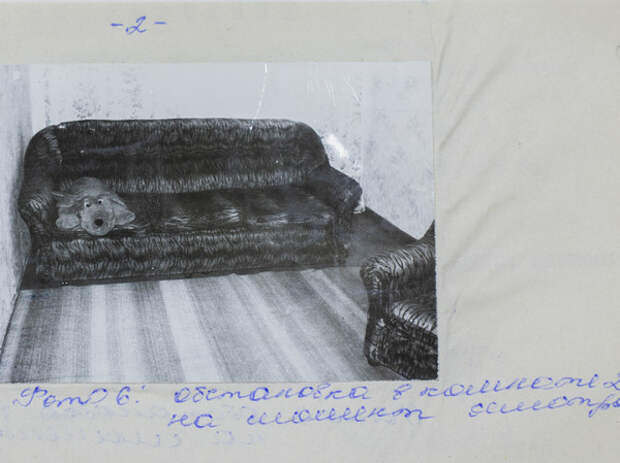 -2-
Фото 6: обстановка в комнате 2
на момент осмотра